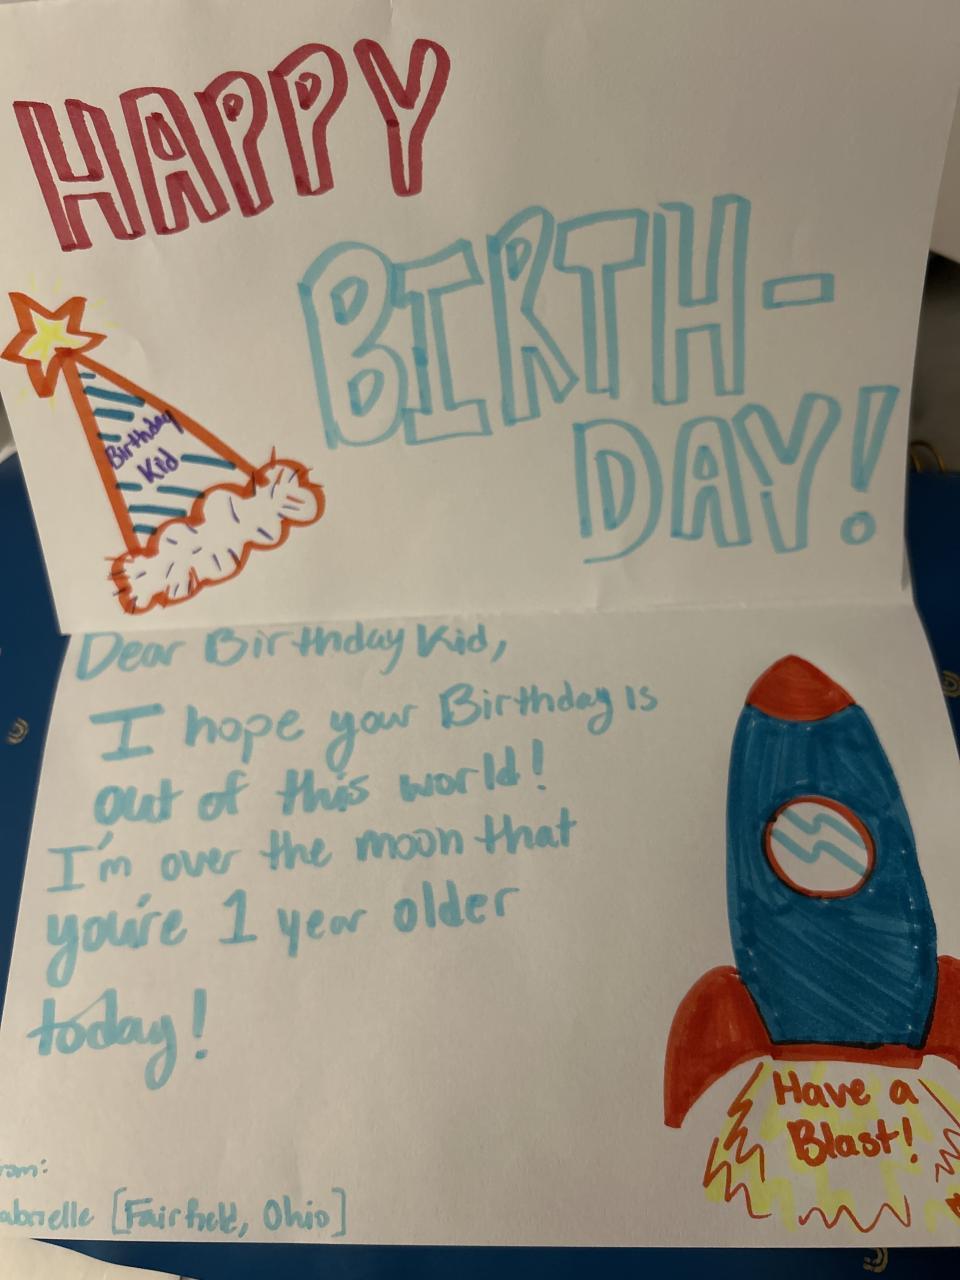 HAPPY
BIRTH-
DAY!
Birthday
Kid
Dear Birthday Kid,
I hope your Birthday is
out of this world!
I'm over the moon that
you're 1 year older
today!
Have a
Blast!
rom:
abrielle [Fairfield, Ohio]